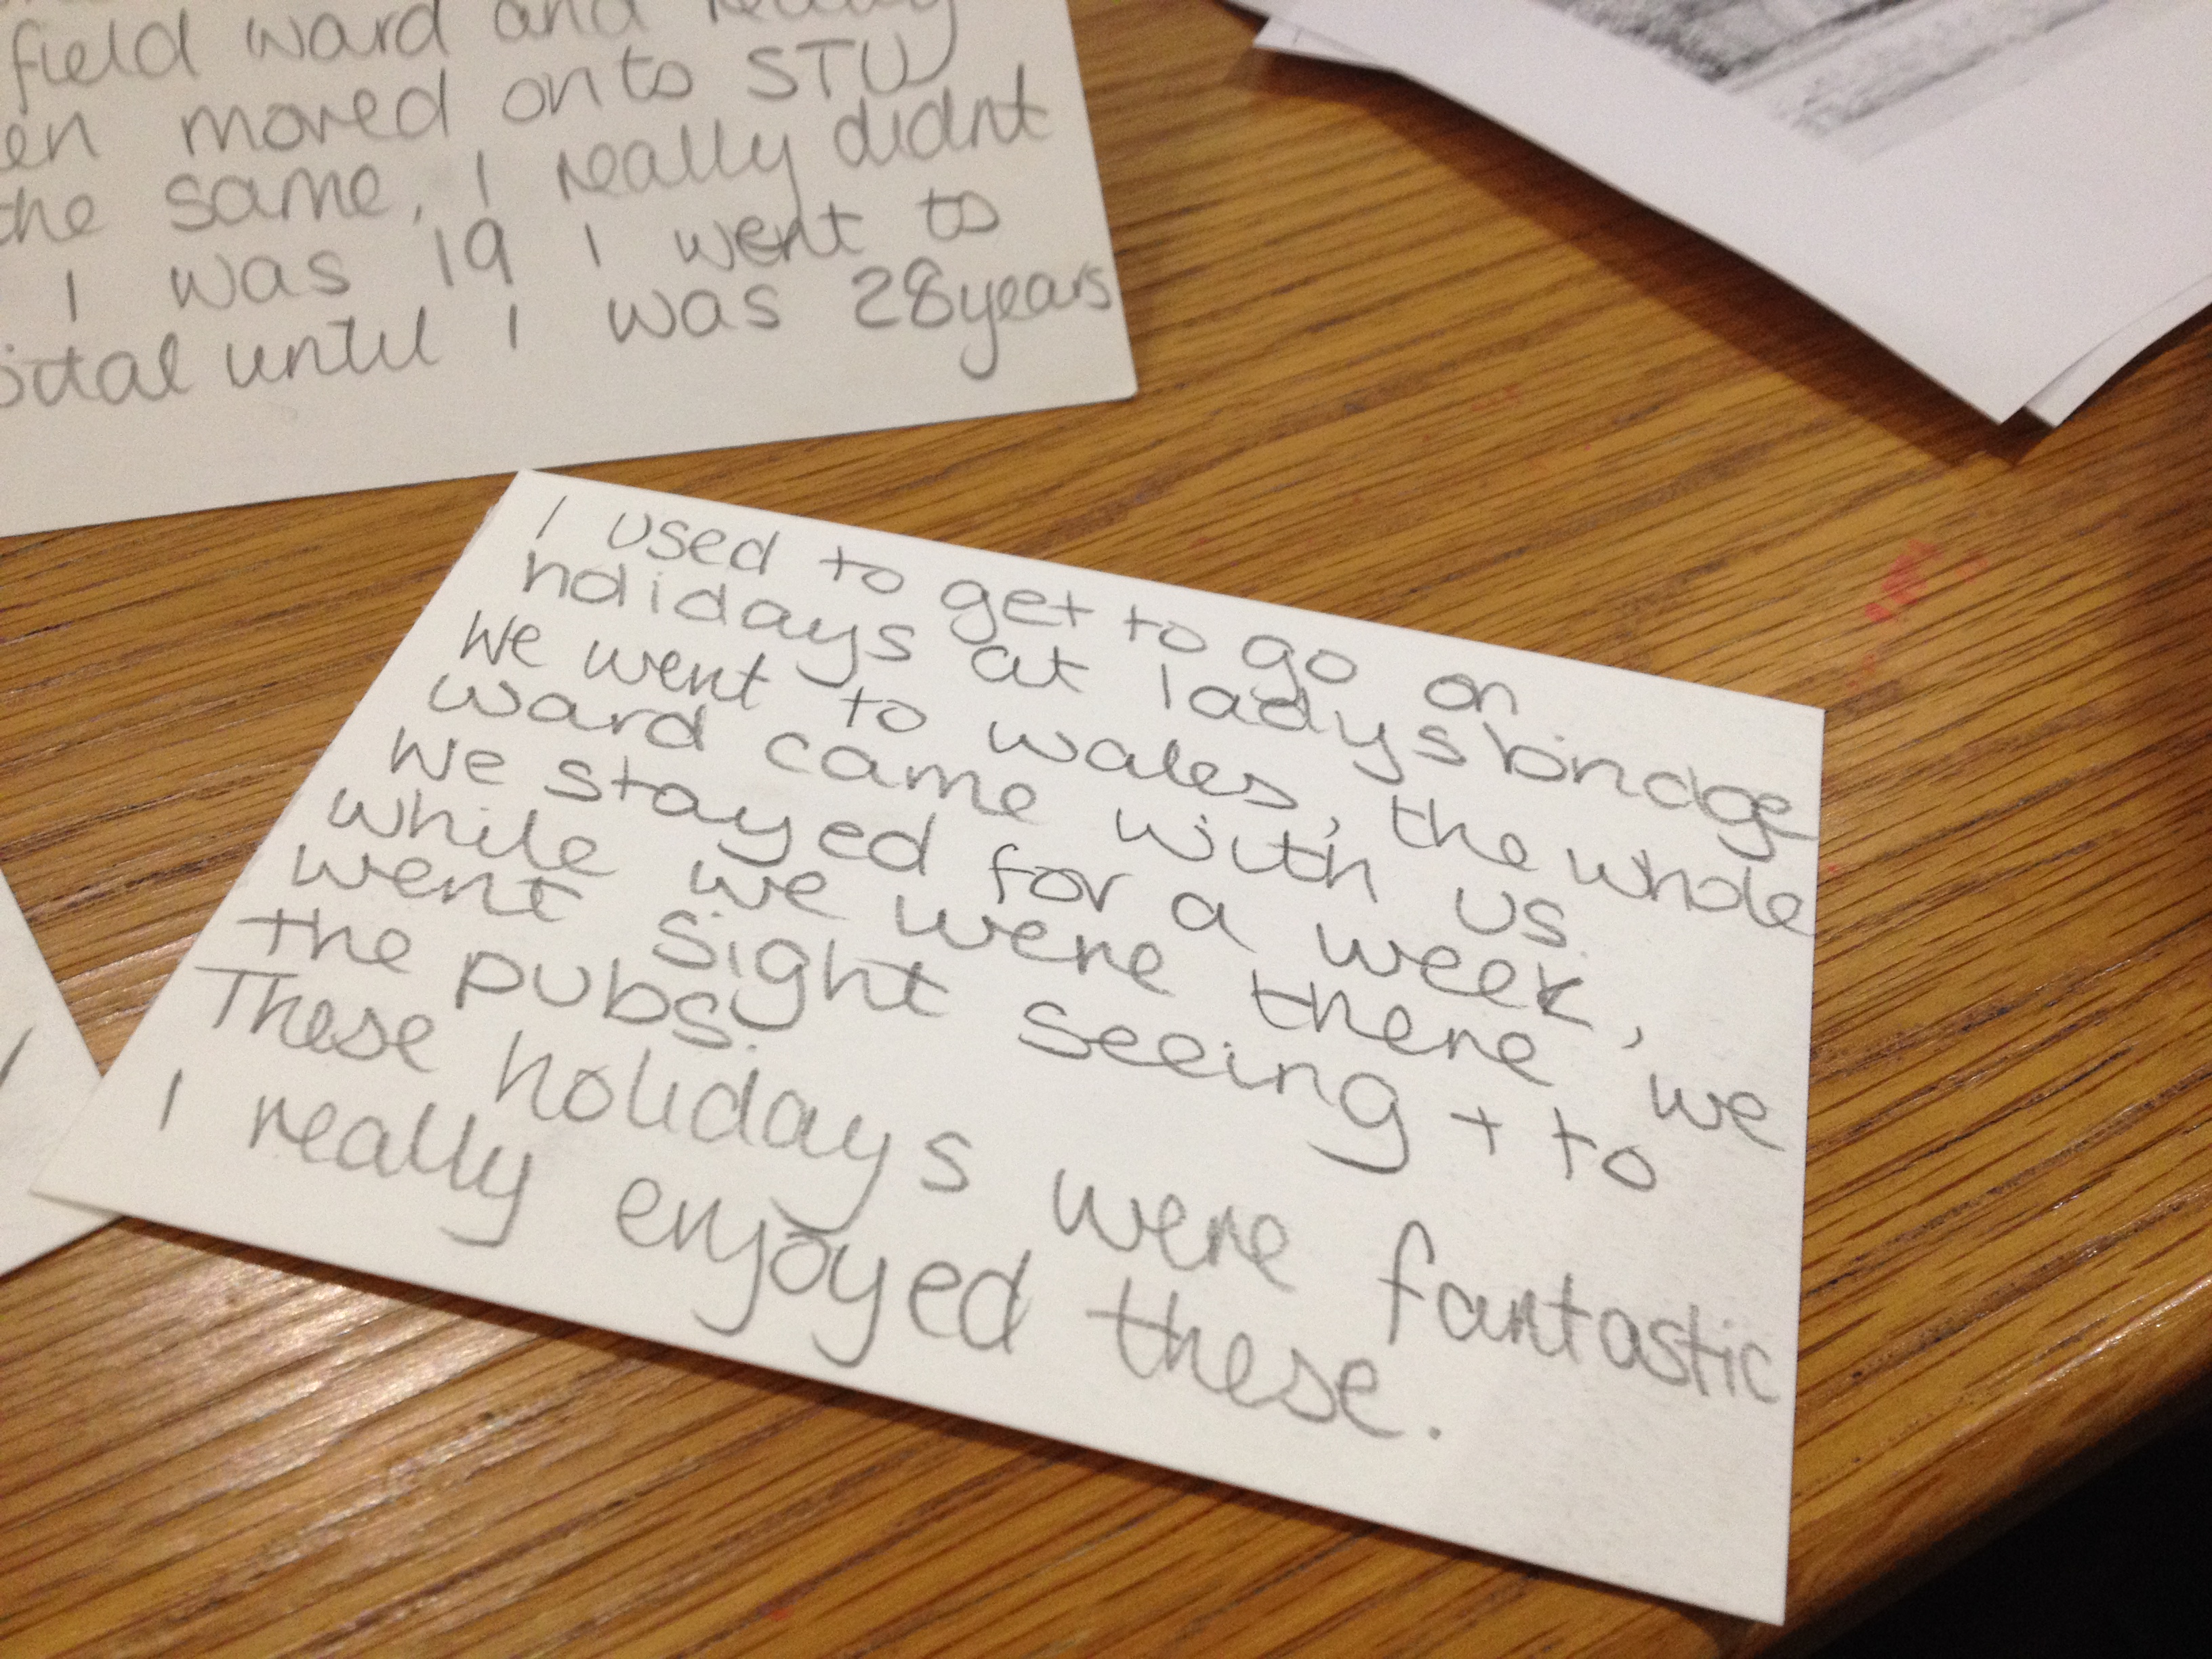 field ward and really
en moved onto STU
the same, I really didnt
I was 19 I went to
until I was 28years
I used to get to go on
holidays at ladysbridge
We went to wales, the whole
ward came with us.
We stayed for a week,
while we were there we
went sight seeing + to
the pubs.
These holidays were fantastic
I really enjoyed these.